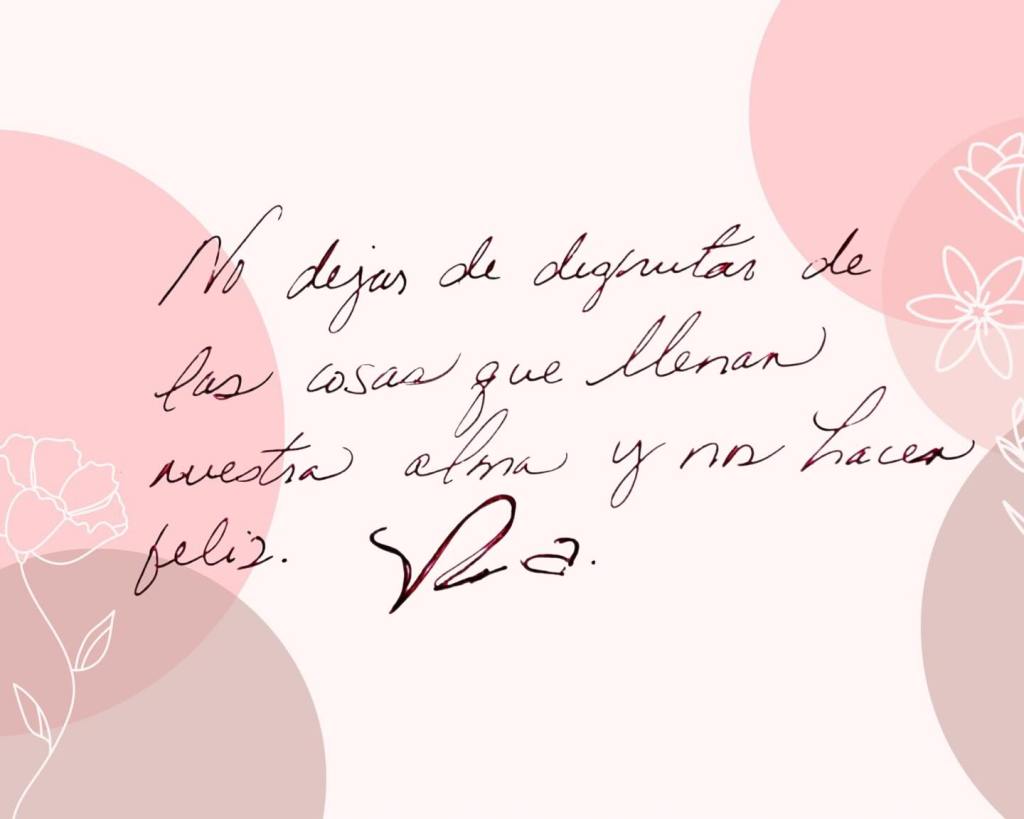 No dejar de disfrutar de
las cosas que llenan
nuestra alma y nos hacen
feliz.